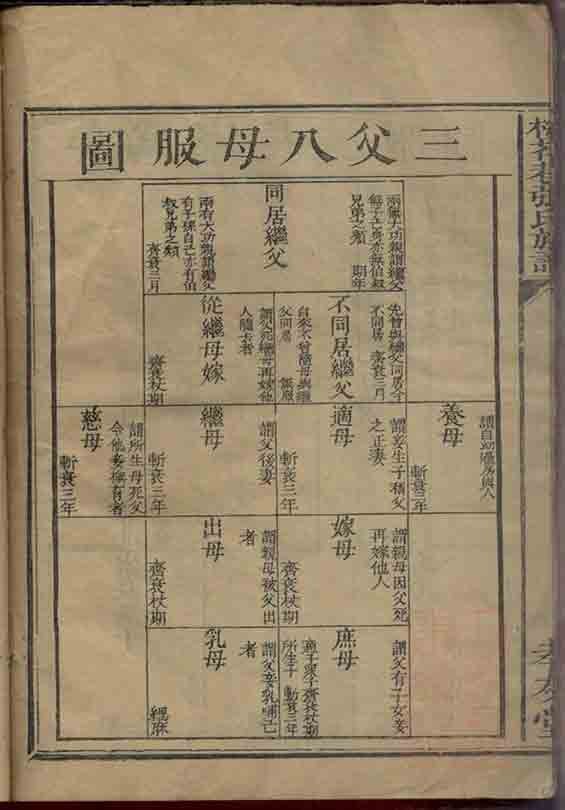 三父八母服圖
同居繼父
兩無大功親謂繼父
無子己身亦無伯叔
兄弟之類 期年
兩有大功親謂繼父
有子孫自己亦有伯
叔兄弟之類
齊衰三月
不同居繼父
先曾與繼父同居今
不同居 齊衰三月
自來不曾隨母與繼
父同居 無服
從繼母嫁
謂父死繼母再嫁他
人隨去者
齊衰杖期
養母
謂自幼過房與人
斬衰三年
適母
謂妾生子稱父
之正妻
斬衰三年
繼母
謂父後妻
斬衰三年
慈母
謂所生母死父
令他妾撫育者
斬衰三年
嫁母
謂親母因父死
再嫁他人
齊衰杖期
出母
謂親母被父出
者
齊衰杖期
庶母
謂父有子女妾
嫡子眾子齊衰杖期
所生子 斬衰三年
乳母
謂父妾乳哺
者
緦麻
張氏族譜
孝友堂